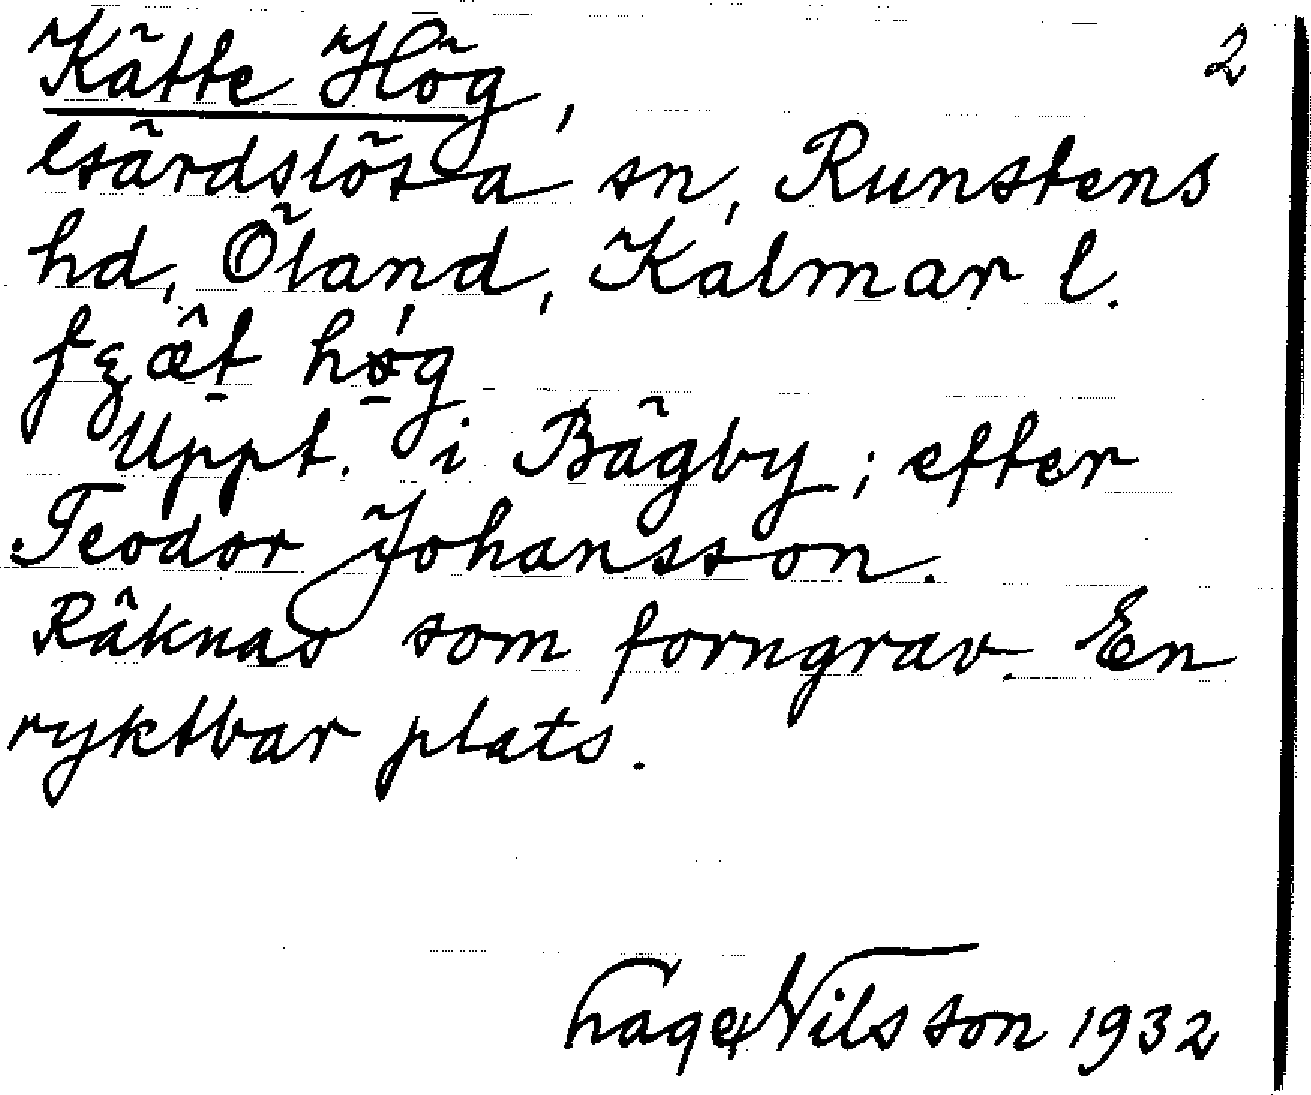 Kätte Hög, 2
lsärdslösa sn, Runstens
hd, Öland, Kalmar l.
hǿ̠g
Uppt. i Bägby; efter
Teodor Johansson.
Räknas som forngrav. En
ryktbar plats.
Nilsson 1932